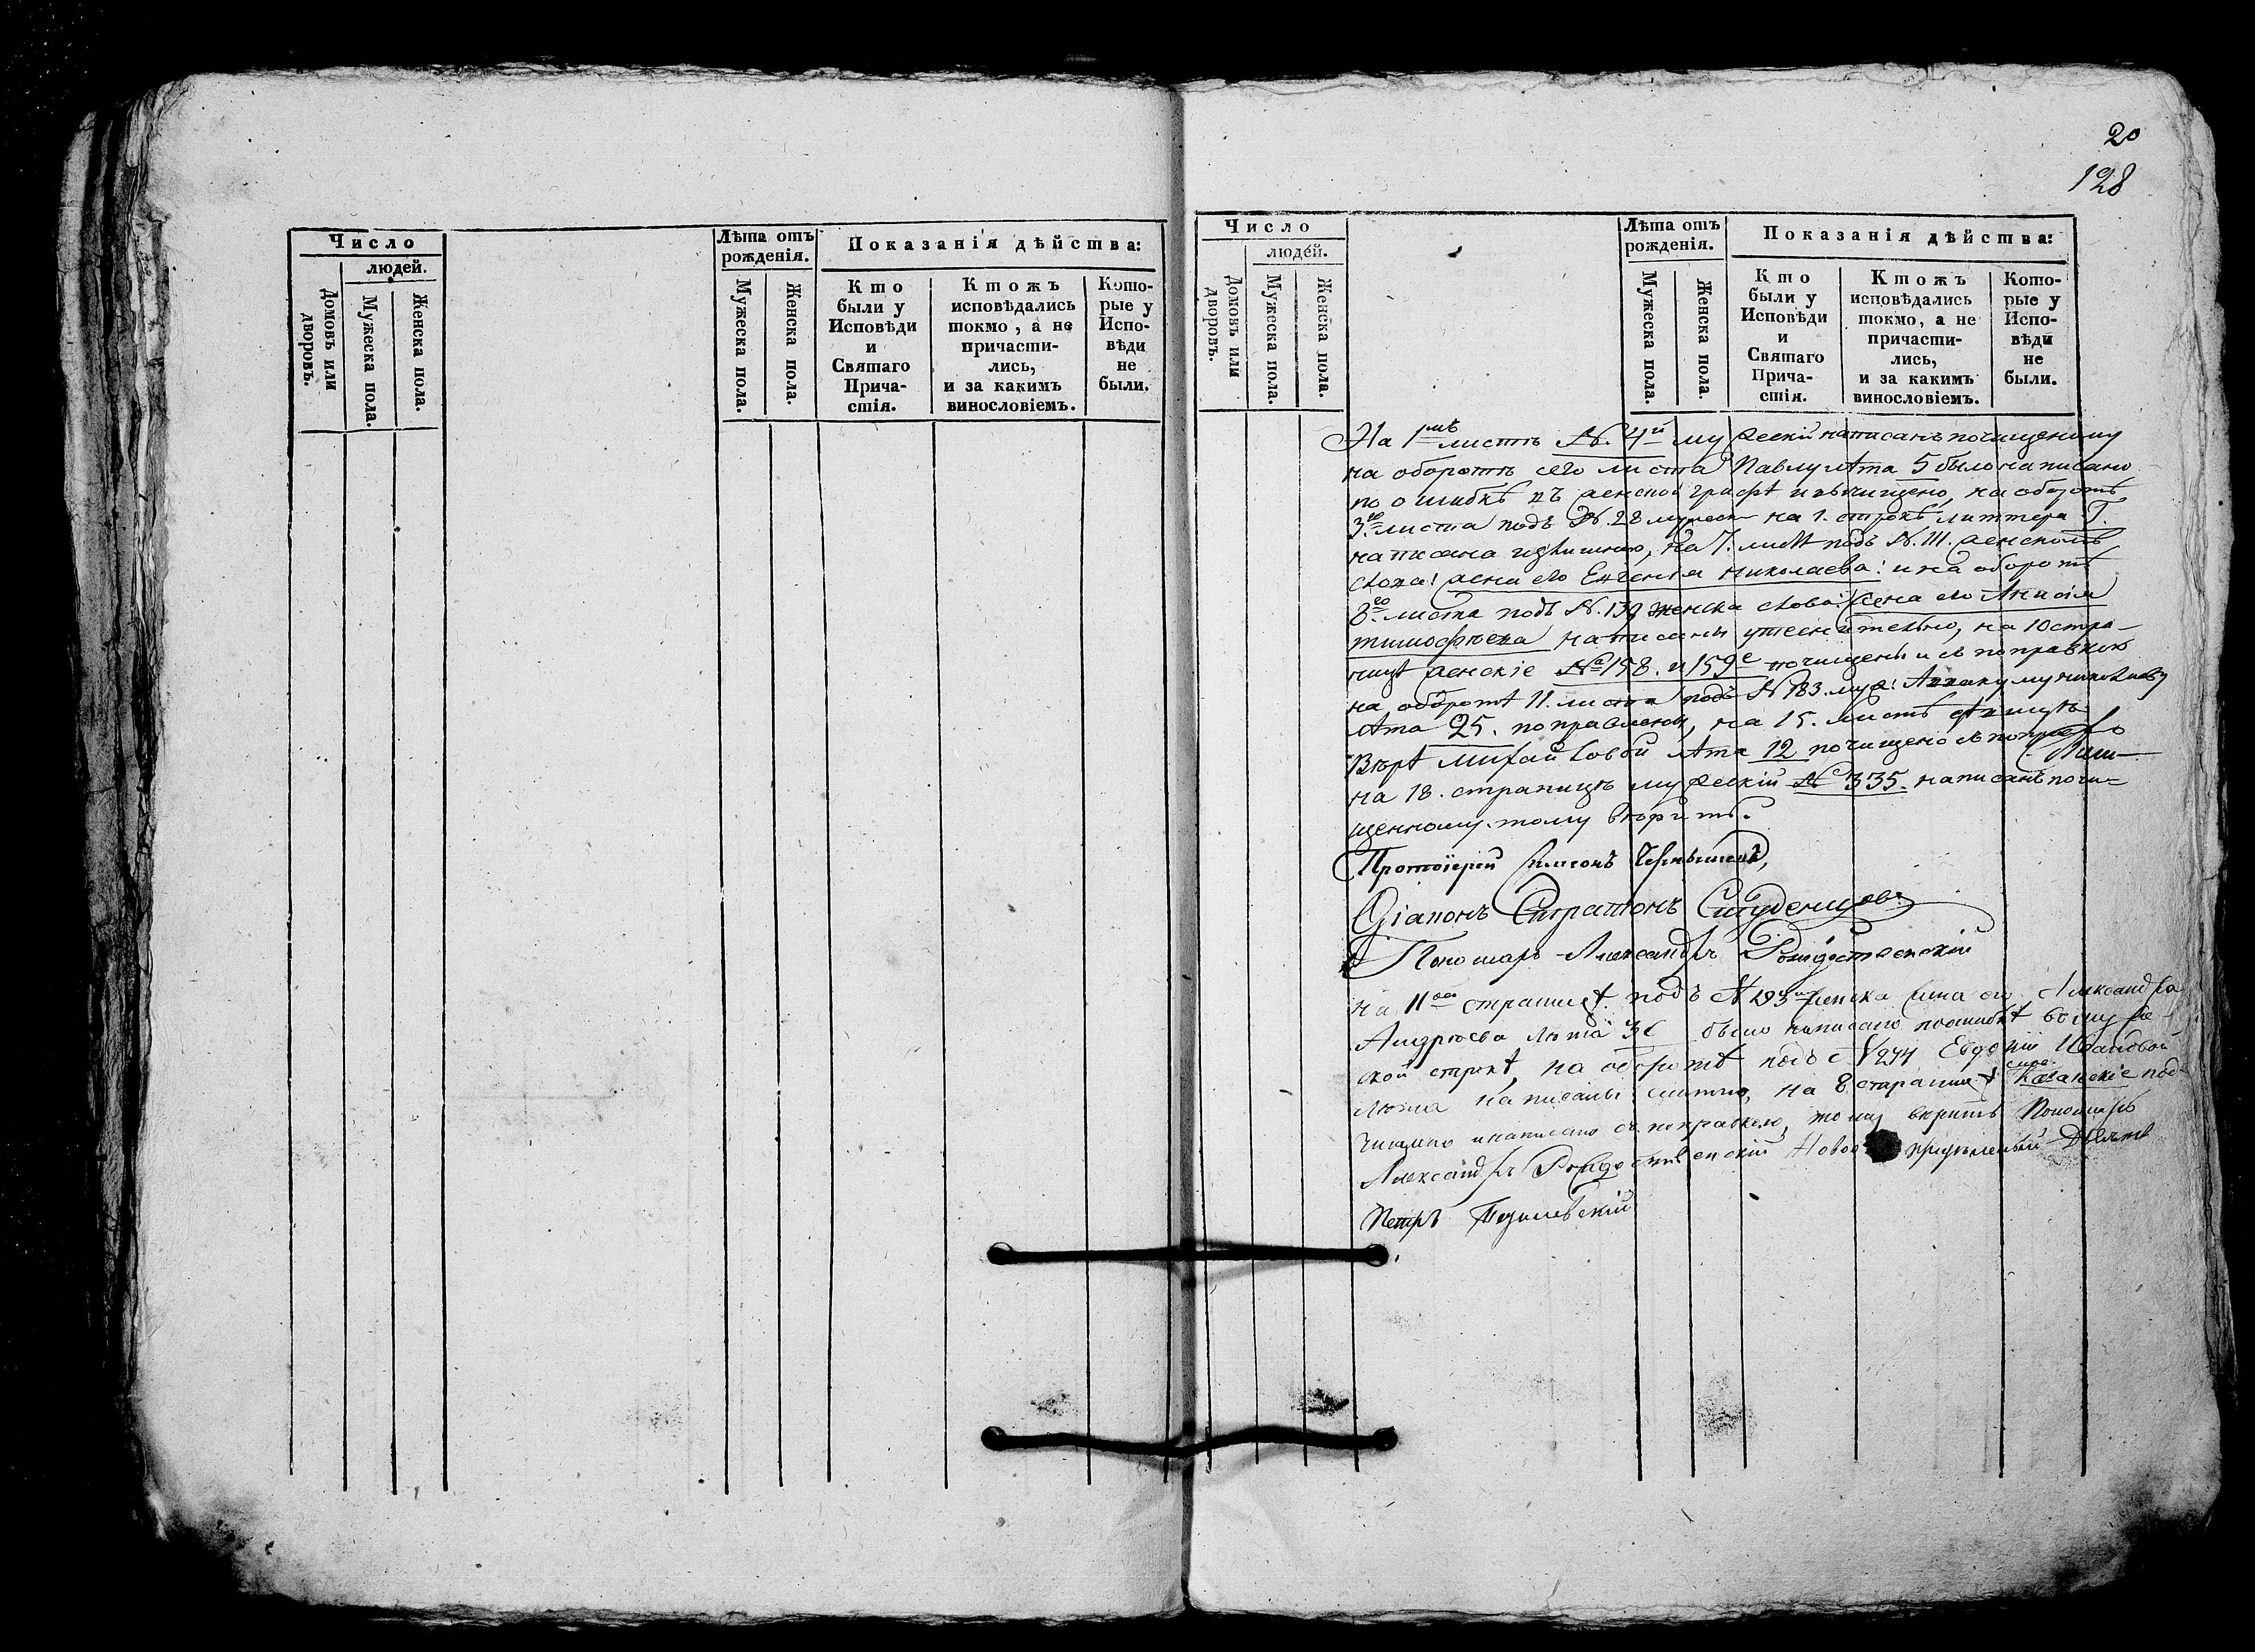 Число
людей.
Домовъ или
дворовъ.
Мужеска пола.
Женска пола.
Лѣта отъ
рожденія.
Мужеска пола.
Женска пола.
Показанія дѣйства:
Кто
были у
Исповѣди
и
Святаго
Прича-
стія.
Ктожъ
исповѣдались
токмо, а не
причасти-
лись,
и за какимъ
винословіемъ.
Кото-
рые у
Испо-
вѣди
не
были.
20
128
Число
людей.
Домовъ или
дворовъ.
Мужеска пола.
Женска пола.
Лѣта отъ
рожденія.
Мужеска пола.
Женска пола.
Показанія дѣйства:
Кто
были у
Исповѣди
и
Святаго
Прича-
стія.
Ктожъ
исповѣдались
токмо, а не
причасти-
лись,
и за какимъ
винословіемъ.
Кото-
рые у
Испо-
вѣди
не
были.
На 1мъ листѣ №. 4й мужескій написанъ почищеному
на оборотѣ сего листа Павлу лѣта 5 было написано
по ошибкѣ въ женской графѣ и вычищено, на оборотѣ
3го листа подъ №. 28 мужеск на 1. строкѣ литтера Г.
написана излишнею, на 7. листѣ подъ №. 111. женскомъ
слова: жена его Евгенія Николаева: и на оборотѣ
8го листа подъ №. 139 женска слова: жена его Анисія
Тимофѣева написаны утеснительно, на 10 стра-
ницѣ женскіе №а 158. и 159е почищены и съ поправкою
на оборотѣ 11. листа подъ № 183. муж: Николаеву
лѣта 25. поправлены, на 15. листѣ дѣвицѣ
Вѣрѣ Михайловой лѣта 12 почищено съ поправ
на 18. страницѣ мужескій № 335. написанъ почи-
щенному. тому вѣрить.
Протоіерей Симеонъ Чернышевъ,
Діаконъ Стратонъ Студенцовъ
Пономарь Александръ Рождественскій
на 11ой страницѣ подъ № 293мъ женска жена его Александра
Андрюева лѣта 36 было написано по ошибкѣ въ муже-
ской строкѣ, на оборотѣ подъ № 274 Евдокіи Ивановой
лѣта написаны на 8 страницѣ Казанскіе под
чищено и написано съ поправкою, тому вѣрить Пономарь
Александръ Рождественскій Ново опредѣленный Дьячекъ
Петръ